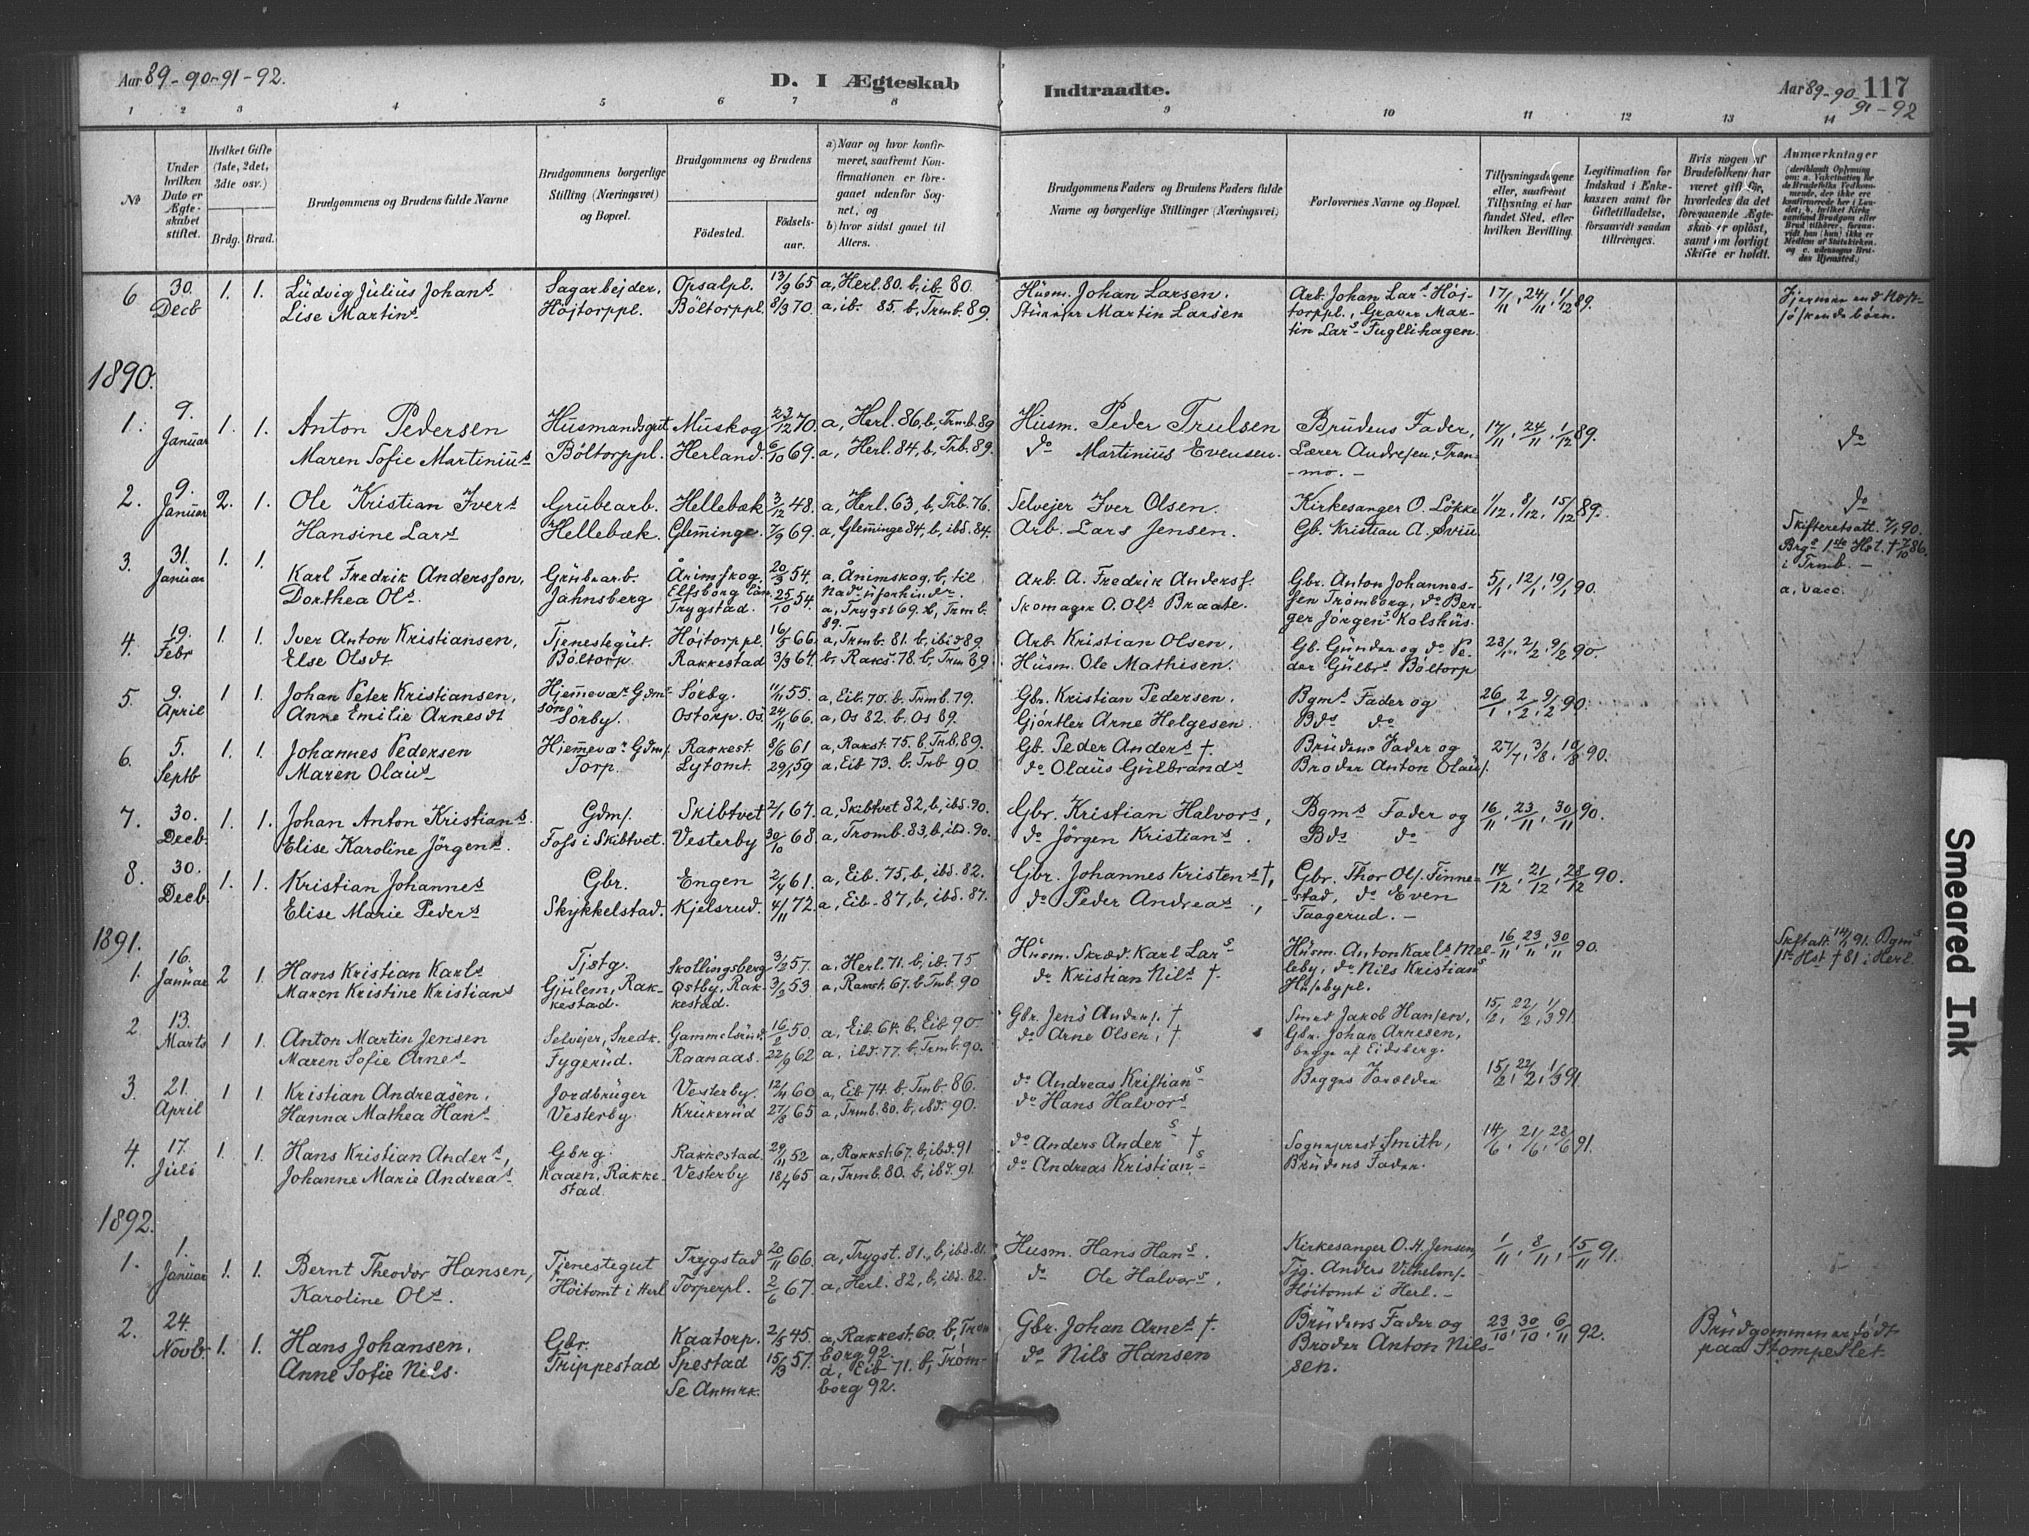 Aar 89-90-91-92.
D. I Ægteskab
Indtraadte.
Aar 89-90-
91-92
117
1 2 3 4 5 6 7 8 9 10 11 12 13 14
No
Under hvilken Dato er Ægteskabet stiftet.
Hvilket Gifte (1ste, 2det, 3die osv.)
Brdg. Brud.
Brudgommens og Brudens fulde Navne
Brudgommens borgerlige Stilling (Næringsvei) og Bopæl.
Brudgommens og Brudens
Fødested.
Fødselsaar.
a) Naar og hvor konfirmeret, saafremt Konfirmationen er foregaaet udenfor Sognet, og
b) hvor sidst gaaet til Alters.
Brudgommens Faders og Brudens Faders fulde Navne og borgerlige Stillinger (Næringsvei)
Forlovernes Navne og Bopæl.
Tillysningsdagene eller, saafremt Tillysning ei har fundet Sted, efter hvilken Bevilling.
Legitimation for Indskud i Enkekassen samt for Giftetilladelse, forsaavidt saadan tiltrænges.
Hvis nogen af Brudefolkene har været gift før, hvorledes da det foregaaende Ægteskab er opløst, samt om lovligt Skifte er holdt.
Anmærkninger
6 30. Decb 1. 1.
Ludvig Julius Johans
Lise Martins
Sagarbejder, Højtorppl.
Opsalpl. 13/9 65 a, Herl. 80. b, ib. 80.
Bøltorppl. 8/3 70. a, ib. 85. b, Trmb. 89.
Husm. Johan Larsen.
Martin Larsen
Arb. Johan Lars Højtorppl., Graver Martin Lars Fugllihagen.
17/11, 24/11, 1/12 89.
1890.
1. 9. Januar 1. 1.
Anton Pedersen
Maren Sofie Martinius
Husmandsgut Bøltorppl.
Muskog 23/12 70. a, Herl. 86, b, Trmb. 89
Herland. 6/10 69. a, Herl. 84, b, Trb. 89.
Husm. Peder Trulsen
do Martinius Evensen.
Brudens Fader,
Lærer Andresen, Tranmo. -
17/11, 24/11, 1/12 89.
do
2. 9. Januar 2. 1.
Ole Kristian Ivers
Hansine Lars
Grubearb. Hellebæk.
Hellebæk 3/12 48. a, Herl. 63, b, Trb. 76.
Glemminge 7/9 69. a, Glemminge 84, b, ibd. 84.
Selvejer Iver Olsen.
Arb. Lars Jensen.
Kirkesanger O. Løkke
Gb. Kristian A. Sviu
1/12, 8/12, 15/12 89.
do
Skifteretsatt. 7/1 90.
Brgs 1ste Hst. † 7/10 86.
i Trmb. -
3. 31. Januar 1. 1.
Karl Fredrik Andersson,
Dorthea Ols.
Grubearb. Jahnsberg
Ånimskog, Elfsborg Län 20/3 54. a, Ånimskog, b, til Nadv. uforhindr.
Trygstad. 25/10 54. a, Trygst 69. b, Trmb. 89.
Arb. A. Fredrik Anderss.
Skomager O. Ols Braate.
Gbr. Anton Johannessen Trømborg, do Berger Jørgens Kolshus.
5/1, 12/1, 19/1 90.
a, vacc.
4. 19. Febr 1. 1.
Iver Anton Kristiansen,
Else Olsdt
Tjenestegut. Bøltorp
Højtorppl. 16/5 66. a, Trmb. 81. b, ibid 89.
Rakkestad 3/3 64. b. Raks. 78. b, Trm 89.
Arb. Kristian Olsen.
Husm. Ole Mathisen.
Gb. Gunder og do Peder Gulbrs Bøltorp
2/2, 9/2 90.
5 9. April 1 1.
Johan Peter Kristiansen,
Anne Emilie Arnesdt
Hjemmevær. Gdmssøn Sørby.
Sørby. 11/11 55. a, Eib. 70. b, Trmb. 79.
Ostorp. Os. 24/11 66. a, Os 82. b. Os 89.
Gbr. Kristian Pedersen.
Gjørtler Arne Helgesen.
Bgms Fader og
Bds do
26/1, 2/2, 9/2 90.
6. 5. Septb 1. 1.
Johannes Pedersen
Maren Olaus
Hjemmevær Gdms. Torp.
Rakkest. 8/6 61 a, Rakst. 75. b, Trb. 89.
Lytomt. 29/1 59 a, Eib 73. b, Trb 90
Gb. Peder Anders †.
do Olaus Gulbrands
Brudens Fader og
Broder Anton Olaus.
27/7, 3/8, 10/8 90.
7. 30. Decb. 1. 1.
Johan Anton Kristians.
Elise Karoline Jørgens.
Gdms. Foss i Skibtvet.
Skibtvet 2/1 67. a, Skibtvet 82, b, ibd. 90.
Vesterby 30/10 68 a, Tromb. 83, b, ibd. 90.
Gbr. Kristian Halvors,
do Jørgen Kristians.
Bgms Fader og
Bds do
16/11, 23/11, 30/11 90.
8. 30. Decb. 1. 1.
Kristian Johannes
Elise Marie Peders
Gbr. Skykkelstad.
Engen 2/4 61. a, Eib. 75, b, ibd. 82.
Kjelsrud. 4/11 72. a, Eib. 87, b, ibd. 87.
Gbr. Johannes Kristens †,
do Peder Andreas,
Gbr. Thor Ols. Finnestad, do Even Taagerud. -
14/12, 21/12, 28/12 90.
1891.
1. 16. Januar 2 1.
Hans Kristian Karls
Maren Kristine Kristians
Tjstg. Gulem, Rakkestad.
Skollingsberg 3/2 57. a, Herl. 71. b, ib. 75
Østby, Rakkestad. 3/2 53. a, Ramst. 67. b, Tmb. 90
Husm. Skræd. Karl Lars
do Kristian Nils †
Husm. Anton Karls Melleby, do Nils Kristians Husebypl.
16/11, 23/11, 30/11 90.
Skftatt. 14/1 91. Bgms
1ste Hst † 81 i Herl.
2. 13. Marts 1 1.
Anton Martin Jensen
Maren Sofie Arnes
Selvejer, Snedk. Fygerud.
Gammelsrud 16/2 50. a, Eib. 64. b, Eib 90.
Raanaas. 22/9 62 a, ibd. 77. b, Trmb. 90.
Gbr. Jens Anders. †
do Arne Olsen, †
Smed Jakob Hansen,
Gbr. Johan Arnesen,
begge af Eidsberg.
15/2, 22/2, 1/3 91
3. 21. April 1 1.
Kristian Andreasen,
Hanna Mathea Hans
Jordbruger Vesterby.
Vesterby. 12/4 60. a, Eib 74. b, Tmb. 86.
Krukerud 27/8 65 a, Trmb. 80. b, ibd. 90.
do Andreas Kristians
do Hans Halvors
Begges Forældre
15/2, 22/2, 1/3 91.
4. 17. Juli 1 1.
Hans Kristian Anders,
Johanne Marie Andreas
Gbrg. Kaaen, Rakkestad.
Rakkestad. 29/11 52 a, Rakkst. 67. b, ibd. 91
Vesterby 18/7 65 a, Trmb. 80. b, ibd. 91.
do Anders Anders †
do Andreas Kristians
Sogneprest Smith,
Brudens Fader.
14/6, 21/6, 28/6 91.
1892.
1. 1. Januar 1. 1.
Bernt Theodor Hansen,
Karoline Ols.
Tjenestegut Høitomt i Herl
Trygstad 20/11 66. a, Trygst. 81. b, ibd. 81.
Torperpl. 2/6 67. a, Herl. 82, b, ibd. 82.
Husm. Hans Hans.
do Ole Halvors,
Kirkesanger O. H. Jensen
Tjg. Anders Vilhelms.
Høitomt i Herl. -
1/11, 8/11, 15/11 91.
2. 24. Novb. 1. 1.
Hans Johansen,
Anne Sofie Nils.
Gbr. Trippestad
Kaatorp. 2/5 45. a, Rakkest. 60. b, Trømborg 92.
Spestad 15/3 57. a, Eib 71. b, Trømborg 92.
Se Anmrk.
Gbr. Johan Arnes †.
do Nils Hansen
Brudens Fader og
Broder Anton Nilssen.
23/10, 30/10, 6/11 92.
Brudgommen er født
paa Stompeslet.
Smeared Ink